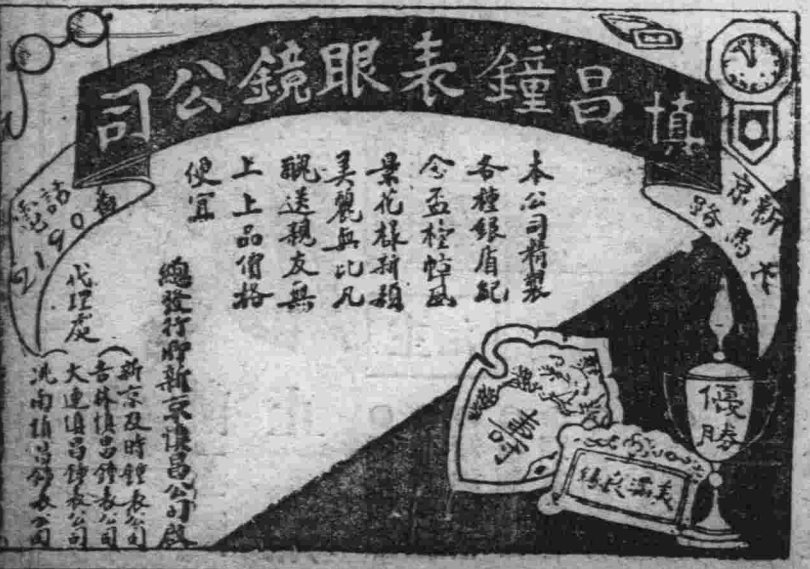 慎昌鐘表眼鏡公司
新京
大馬路
電話
2190番
本公司精製
各種銀盾紀
念盃樘帖風
景花樣新穎
美麗無比凡
醜送親友無
上上品價格
便宜
總發行所新京慎昌公司啟
代理處
新京及時鐘表公司
吉林慎昌鐘表公司
大連慎昌鐘表公司
洮南慎昌鐘表公司
優勝
壽
美滿良緣